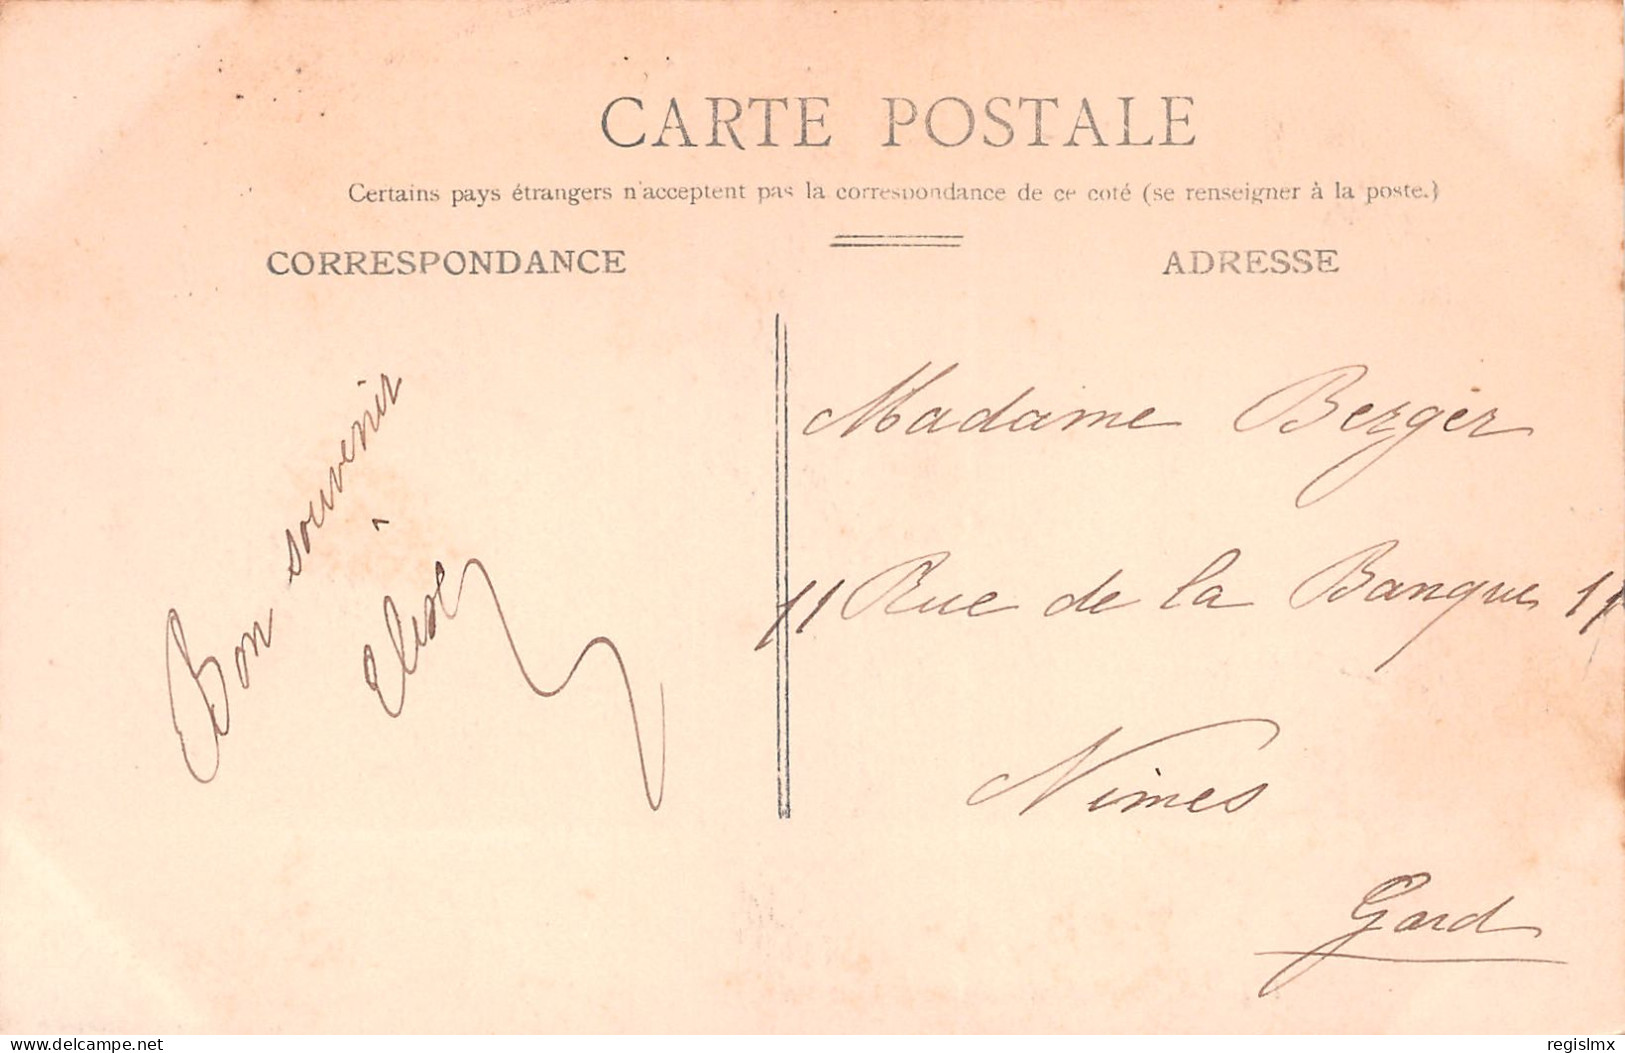 CARTE POSTALE
Certains pays étrangers n'acceptent pas la correspondance de ce coté (se renseigner à la poste.)
CORRESPONDANCE
ADRESSE
Bon souvenir
Madame Berger
11 Rue de la Banque 11
Nimes
Gard
www.delcampe.net
regislmx